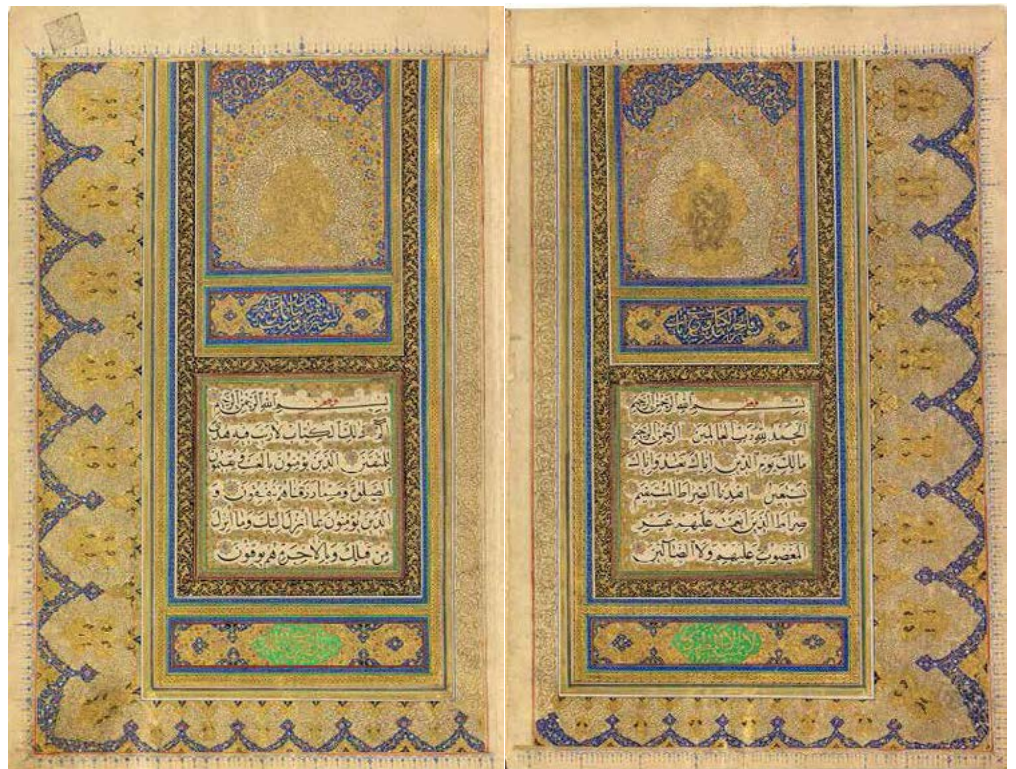 بسم الله الرحمن الرحيم
الحمد لله رب العالمين الرحمن الرحيم
مالك يوم الدين اياك نعبد واياك
نستعين اهدنا الصراط المستقيم
صراط الذين انعمت عليهم غير
المغضوب عليهم ولا الضالين
بسم الله الرحمن الرحيم
الم ذلك الكتاب لا ريب فيه هدى
للمتقين الذين يؤمنون بالغيب ويقيمون
الصلوة ومما رزقناهم ينفقون و
الذين يؤمنون بما انزل اليك وما انزل
من قبلك وبالاخرة هم يوقنون